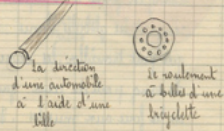 la direction
d'une automobile
à l'aide d'une
bille
le roulement
à billes d'une
bicyclette